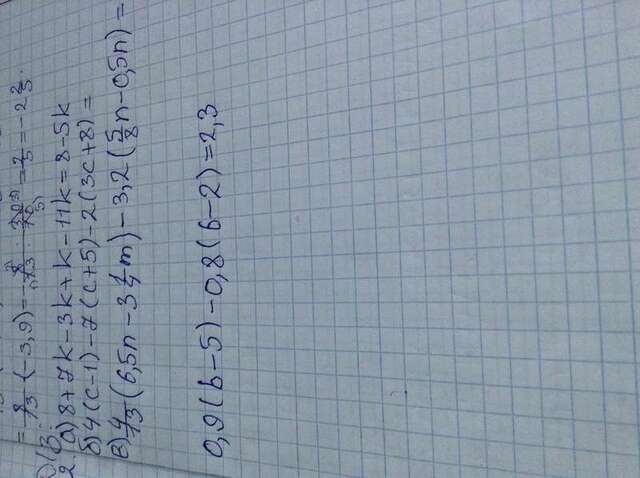 = 8/13 · (-3,9) = - 8/13 · 39/10 = = - 2 2/5
2. а) 8+7k-3k+k-11k=8-5k
б) 4(c-1)-7(c+5)-2(3c+8)=
в) 4/13(6,5n-3 1/4m)-3,2(5/8n-0,5n)=
0,9(b-5)-0,8(b-2)=2,3